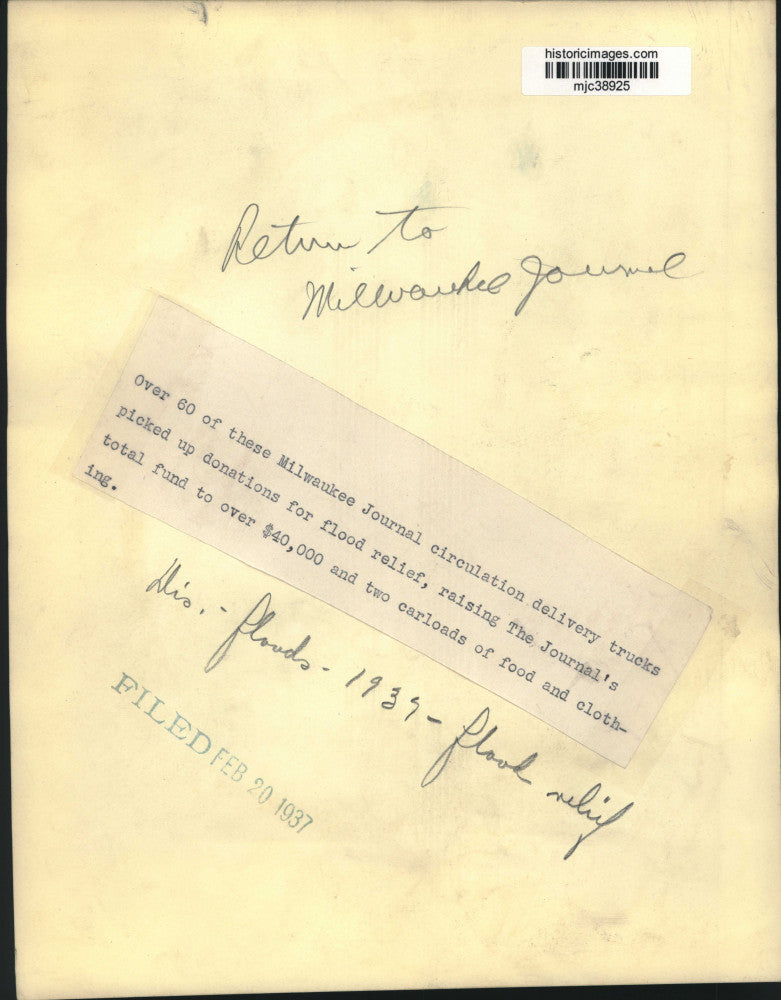 historicimages.com
mjc38925
Return to
Milwaukee Journal
Over 60 of these Milwaukee Journal circulation delivery trucks
picked up donations for flood relief, raising The Journal's
total fund to over $40,000 and two carloads of food and cloth-
ing.
Dis. - floods - 1937 - flood relief
FILED FEB 20 1937